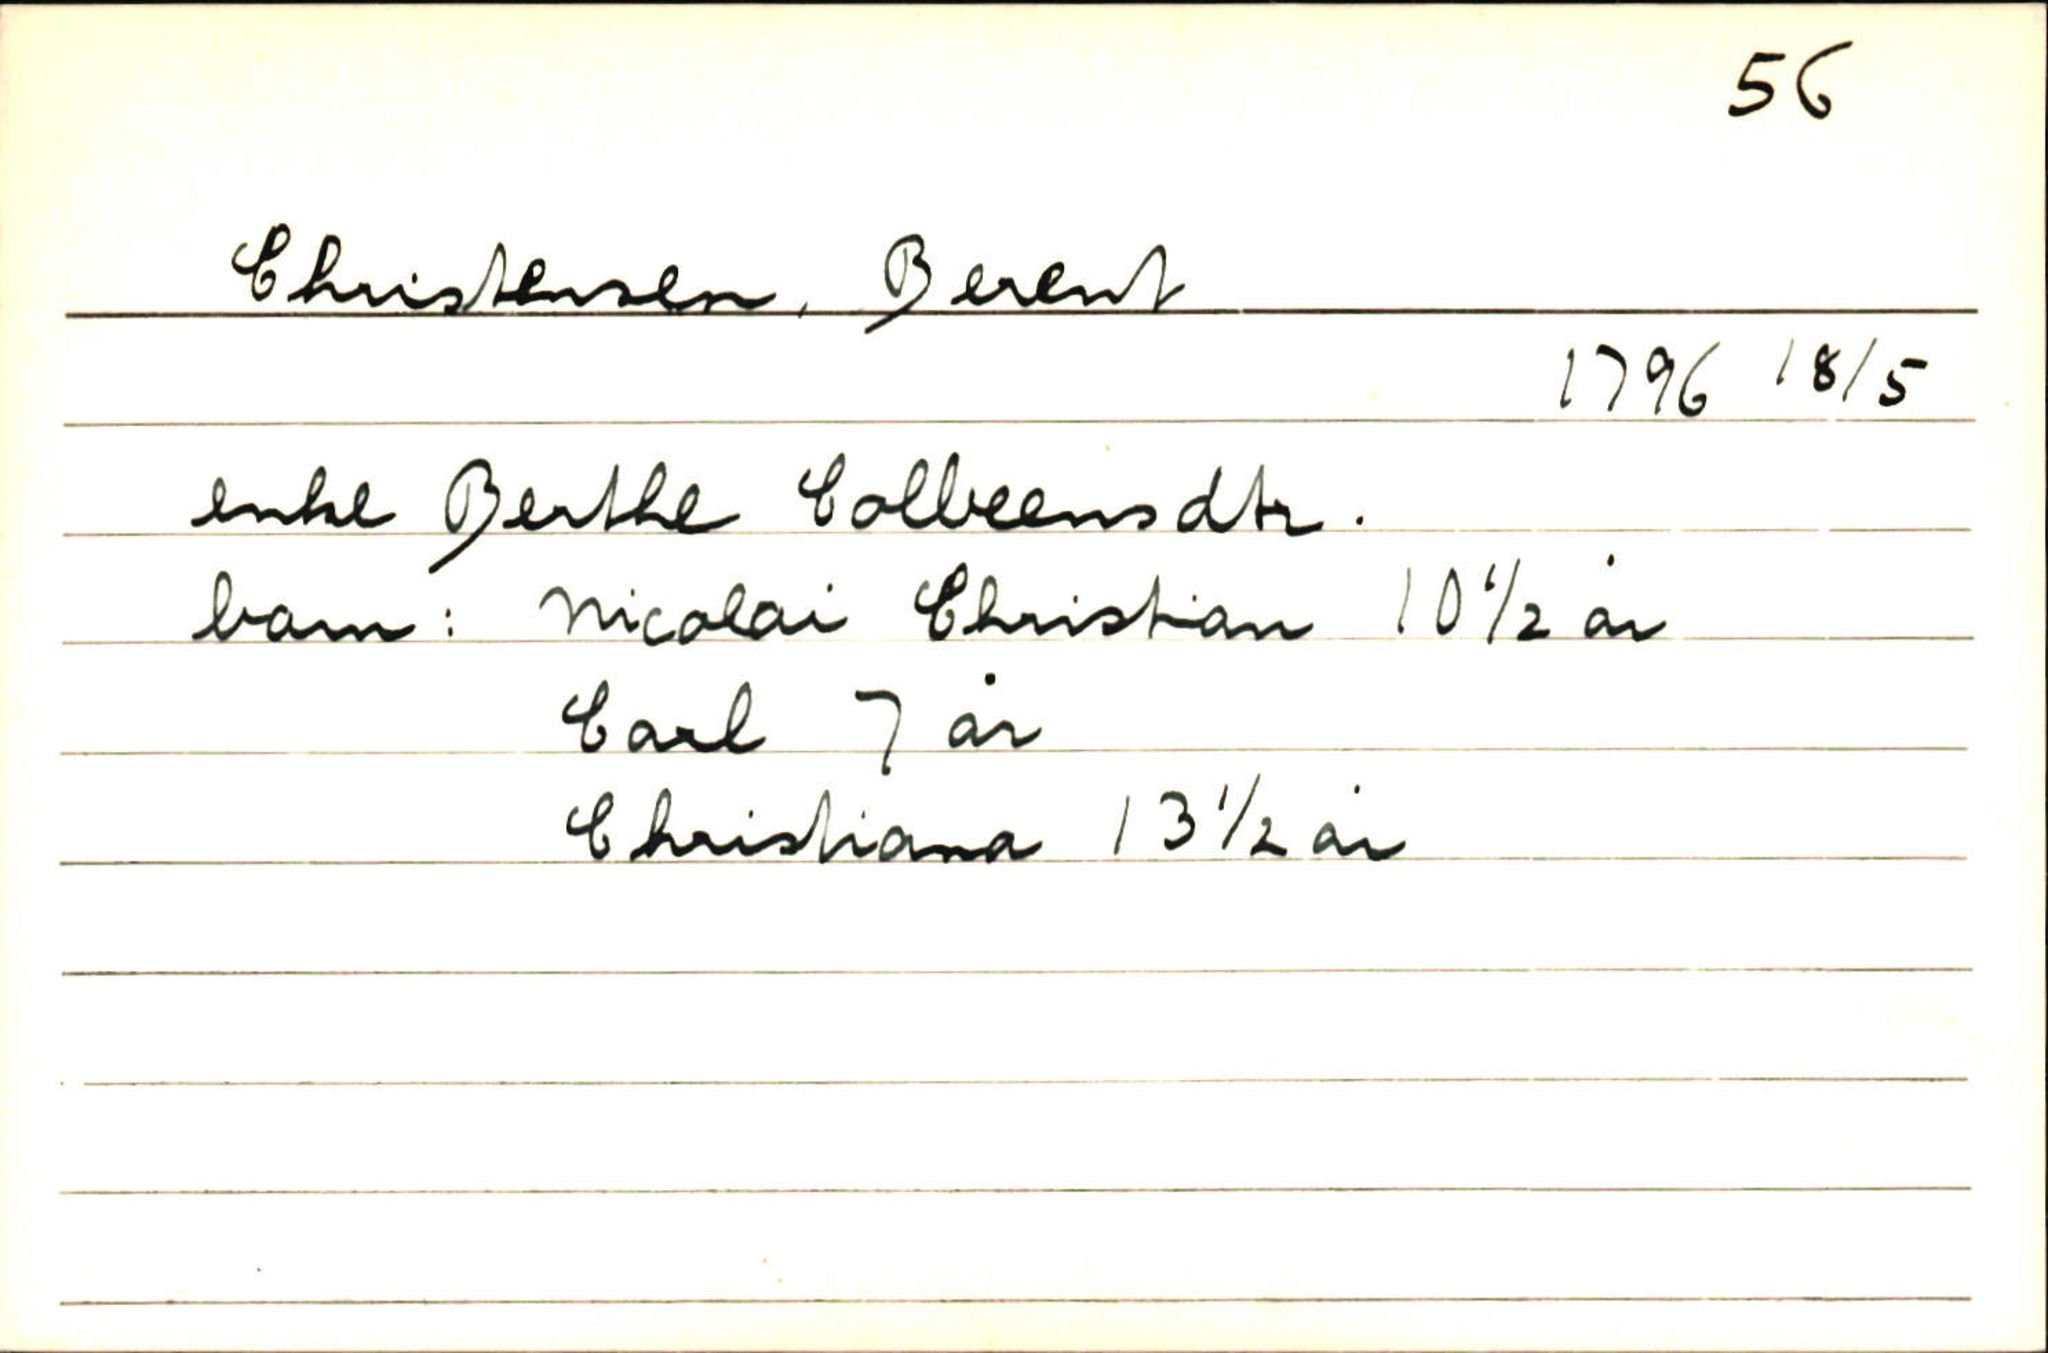 56
Christensen, Berent
1796 18/5
enke Berthe Colbeensdtr.
barn: Nicolai Christian 10 1/2 år
Carl 7 år
Christiana 13 1/2 år